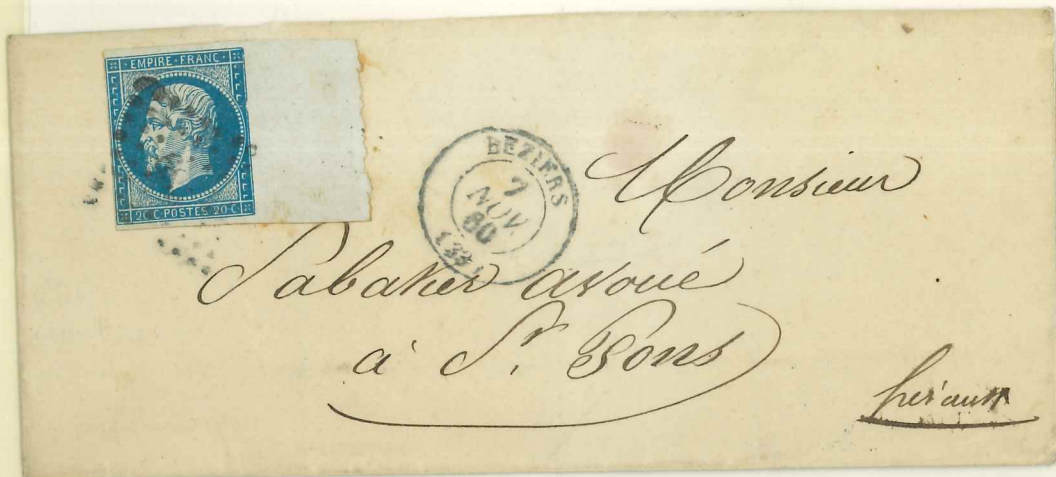 · EMPIRE · FRANC ·
20 · C · POSTES · 20 · C
BEZIERS
7
NOV.
60
(33)
Monsieur
Sabatier avoué
à St. Pons
hérault